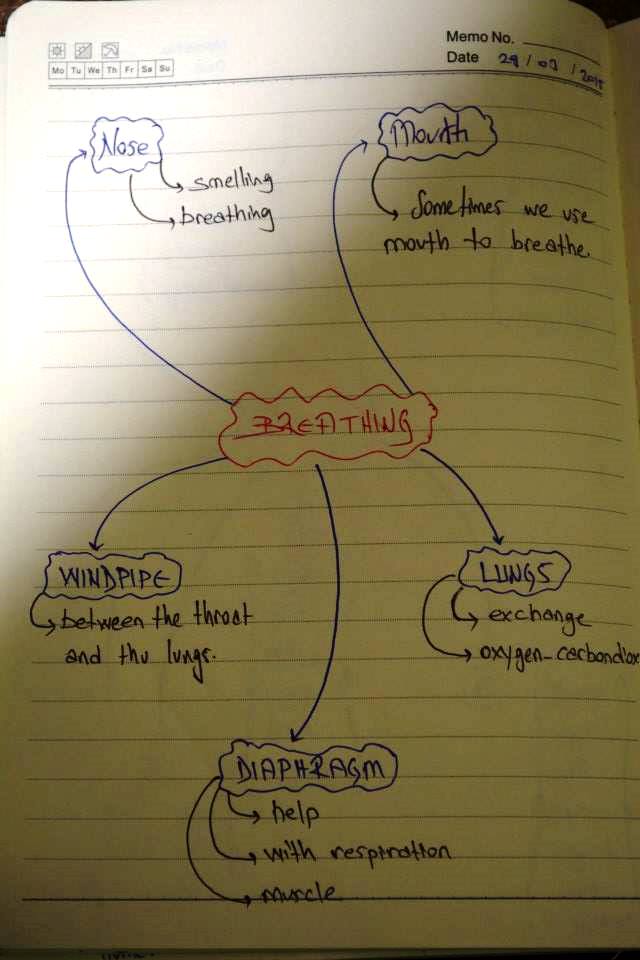 Memo No.
Date 29 / 03 /
Mo Tu We Th Fr Sa Su
Nose
smelling
breathing
Mouth
Sometimes we use
mouth to breathe.
BREATHING
WINDPIPE
between the throat
and thu lungs.
LUNGS
exchange
oxygen-carbondiox
DIAPHRAGM
help
with respiration
muscle